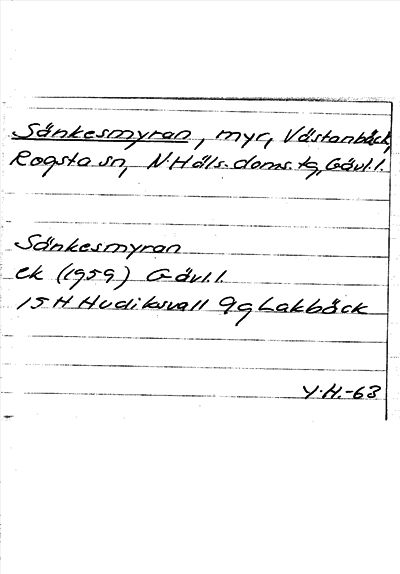 Sänkesmyran, myr, Västanbäck,
Rogsta sn, N Häls. doms. tg, Gävl.l.
Sänkesmyran
ek (1959) Gävl.l.
15 H Hudiksvall 9g Lakbäck
Y.H.-63